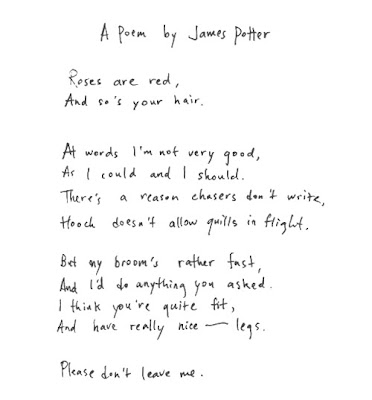 A Poem by James Potter
Roses are red,
And so's your hair.
At words I'm not very good,
As I could and I should.
There's a reason chasers don't write,
Hooch doesn't allow quills in flight.
Bet my broom's rather fast,
And I'd do anything you asked.
I think you're quite fit,
And have really nice — legs.
Please don't leave me.